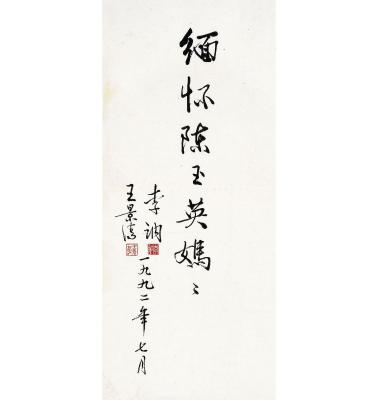 缅怀陈玉英媽〻
李讷
王景清
一九九二年七月